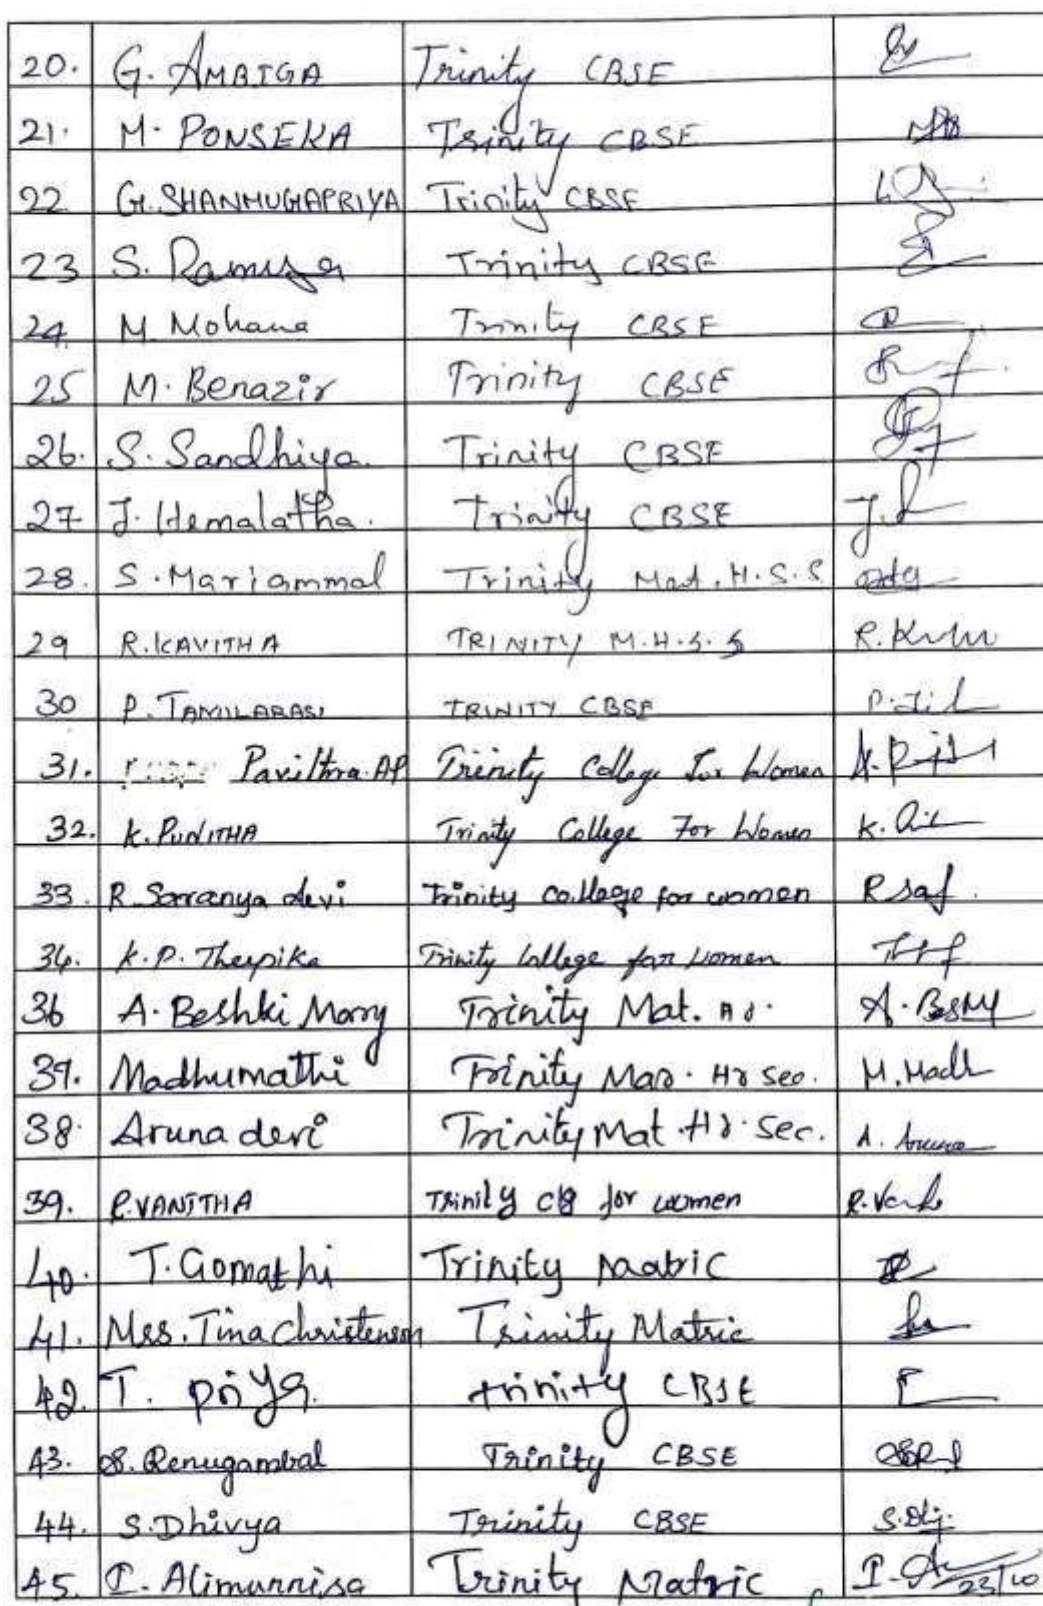 20. G. AMBIGA Trinity CBSE
21. M. PONSEKA Trinity CBSE
22 G. SHANMUGAPRIYA Trinity CBSE
23 S. Ramya Trinity CBSE
24. M. Mohana Trinity CBSE
25 M. Benazir Trinity CBSE
26. S. Sandhiya. Trinity CBSE
27 J. Hemalatha. Trinity CBSE
28. S. Mariammal Trinity Mat. H.S.S
29 R. KAVITHA TRINITY M.H.S.S
30 P. TAMILARASI TRINITY CBSE
31. Pavithra. AP Trinity College For Women
32. K. PUNITHA Trinity College For Women K.
33. R. Saranya devi Trinity college for women R
34. K.P. Theepika Trinity College for Women
36 A. Beshki Mary Trinity Mat. A.
37. Madhumathi Trinity Mat. Hr Sec. M. Madh
38. Aruna devi Trinity Mat. Hr. Sec. A. Aruna
39. R. VANITHA Trinity clg for women R.
40. T. Gomathi Trinity Matric
41. Mrs. Tina Christenson Trinity Matric
42. T. Priya. trinity CBSE
43. S. Renugambal Trinity CBSE
44. S. Dhivya Trinity CBSE
45. I. Alimunnisa Trinity Matric I. 23/10